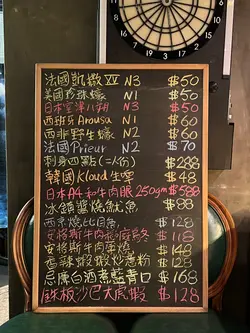 法國凱撒 N3 $50
美國珍珠蠔 N1 $50
日本宮津八朔 N3 $50
西班牙Arousa N1 $60
西非野生蠔 N2 $60
法國Prieur N2 $70
刺身四點(二人份) $238
韓國Kloud生寧 $48
日本A4和牛肉眼250gm $588
冰鎮醬燒魷魚 $88
西京燒比目魚 $128
安格斯牛肉 $118
安格斯牛肉 $148
西辣蝦 炒意粉 $88
忌廉白酒煮藍青口 $168
鐵板沙巴大虎蝦 $128